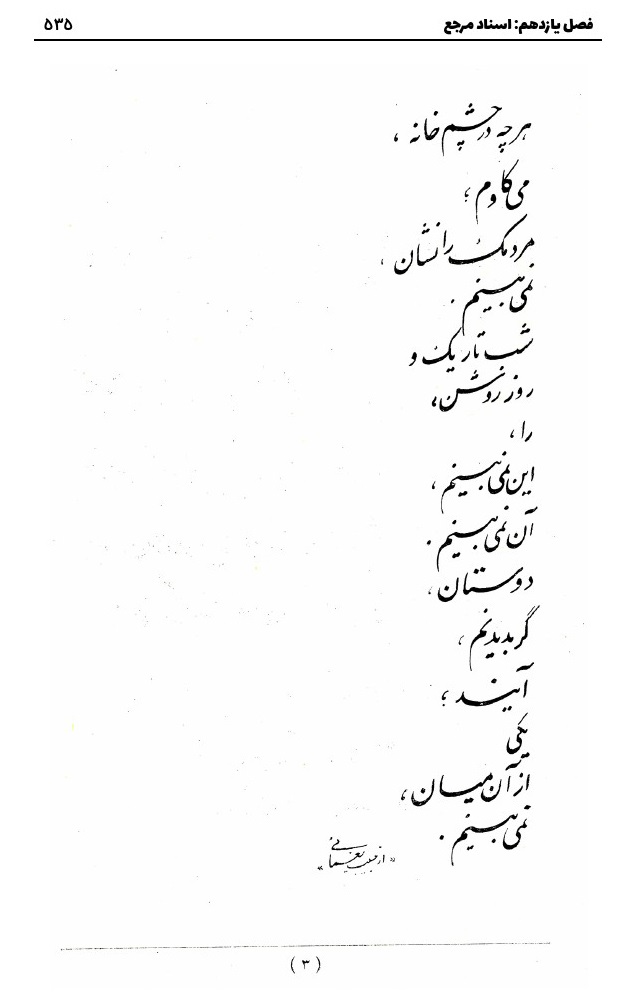 فصل یازدهم: اسناد مرجع ۵۳۵
هرچه در چشم خانه ،
می کاوم ؛
مردمک را نشان ،
نمی بینم .
شب تاریک و
روز روشن،
را ،
این نمی بینم ،
آن نمی بینم .
دوستان ،
گر بدیدنم ،
آیند ؛
یکی
از آن میان ،
نمی بینم .
«از حبیب یغمائی»
( ۳ )